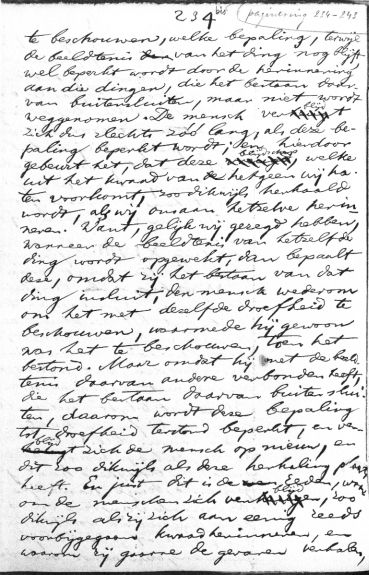 234 bis (paginering 234-243
te beschouwen, welke bepaling, terwijl
de beeldtenis van het ding nog blijft,
wel beperkt wordt door de herinnering
aan die dingen, die het bestaan daar-
van buitensluiten, maar niet wordt
weggenomen. De mensch verblijdt
zich dus slechts zóó lang, als deze be-
paling beperkt wordt, en hierdoor
gebeurt het, dat deze blijdschap, welke
uit het kwaad van hetgeen wij ha-
ten voorkomt, zoo dikwijls herhaald
wordt, als wij ons aan hetzelve herin-
neren. Want, gelijk wij gezegd hebben,
wanneer de beeldtenis van hetzelfde
ding wordt opgewekt, dan bepaalt
deze, omdat zij het bestaan van dat
ding insluit, den mensch wederom
om het met dezelfde droefheid te
beschouwen, waarmede hij gewoon
was het te beschouwen, toen het
bestond. Maar omdat hij met de beeld-
tenis daarvan andere verbonden heeft,
die het bestaan daarvan buitenslui-
ten, daarom wordt deze bepaling
tot droefheid terstond beperkt, en ver-
blijdt zich de mensch op nieuw, en
dit zoo dikwijls als deze herhaling plaats
heeft. En juist dit is de reden, waar-
om de menschen zich verblijden, zoo
dikwijls als zij zich aan eenig reeds
voorbijgegaan kwaad herinneren, en
waarom zij gaarne de gevaren verhalen,